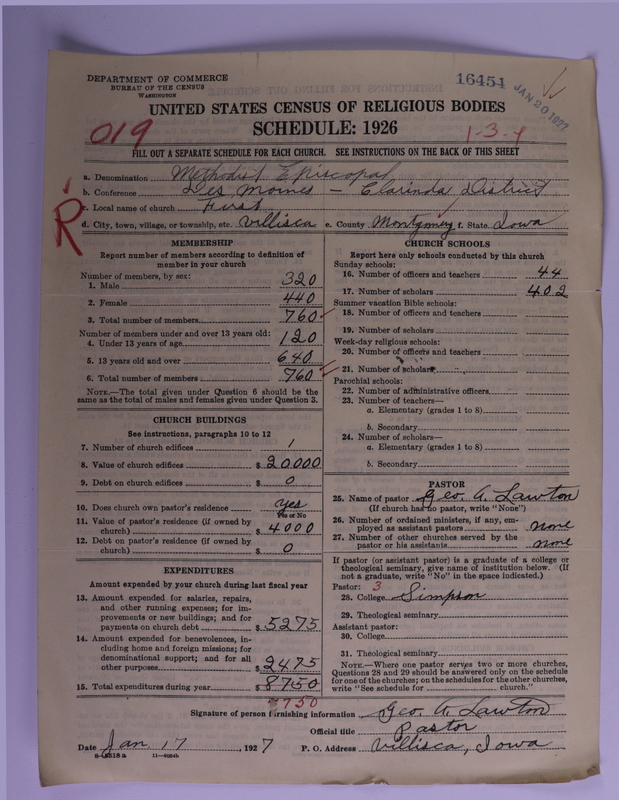 DEPARTMENT OF COMMERCE
BUREAU OF THE CENSUS
WASHINGTON
16454
JAN 20 1927
UNITED STATES CENSUS OF RELIGIOUS BODIES
SCHEDULE: 1926
019
1-3-4
FILL OUT A SEPARATE SCHEDULE FOR EACH CHURCH. SEE INSTRUCTIONS ON THE BACK OF THIS SHEET
R
a. Denomination Methodist Episcopal
b. Conference Des Moines - Clarinda District
c. Local name of church First
d. City, town, village, or township, etc. Villisca e. County Montgomery f. State Iowa
MEMBERSHIP
Report number of members according to definition of
member in your church
Number of members, by sex:
1. Male 320
2. Female 440
3. Total number of members 760
Number of members under and over 13 years old:
4. Under 13 years of age 120
5. 13 years old and over 640
6. Total number of members 760
NOTE.—The total given under Question 6 should be the
same as the total of males and females given under Question 3.
CHURCH BUILDINGS
See instructions, paragraphs 10 to 12
7. Number of church edifices 1
8. Value of church edifices $20000
9. Debt on church edifices $ 0
10. Does church own pastor's residence? yes
Yes or No
11. Value of pastor's residence (if owned by
church) $ 4000
12. Debt on pastor's residence (if owned by
church) $ 0
EXPENDITURES
Amount expended by your church during last fiscal year
13. Amount expended for salaries, repairs,
and other running expenses; for im-
provements or new buildings; and for
payments on church debt $5275
14. Amount expended for benevolences, in-
cluding home and foreign missions; for
denominational support; and for all
other purposes $2475
15. Total expenditures during year $8750
7750
CHURCH SCHOOLS
Report here only schools conducted by this church
Sunday schools:
16. Number of officers and teachers 44
17. Number of scholars 402
Summer vacation Bible schools:
18. Number of officers and teachers
19. Number of scholars
Week-day religious schools:
20. Number of officers and teachers
21. Number of scholars
Parochial schools:
22. Number of administrative officers
23. Number of teachers—
a. Elementary (grades 1 to 8)
b. Secondary
24. Number of scholars—
a. Elementary (grades 1 to 8)
b. Secondary
PASTOR
25. Name of pastor Geo. A. Lawton
(If church has no pastor, write "None")
26. Number of ordained ministers, if any, em-
ployed as assistant pastors none
27. Number of other churches served by the
pastor or his assistants none
If pastor (or assistant pastor) is a graduate of a college or
theological seminary, give name of institution below. (If
not a graduate, write "No" in the space indicated.)
Pastor: 3
28. College Simpson
29. Theological seminary
Assistant pastor:
30. College
31. Theological seminary
NOTE.—Where one pastor serves two or more churches,
Questions 28 and 29 should be answered only on the schedule
for one of the churches; on the schedules for the other churches,
write "See schedule for church."
Signature of person furnishing information Geo. A. Lawton
Official title Pastor
Date Jan 17, 1927 P. O. Address Villisca, Iowa